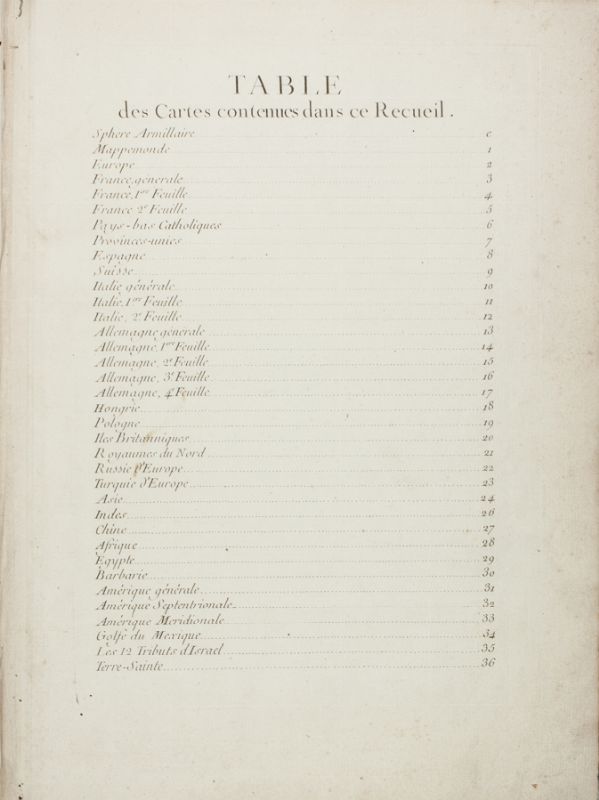 TABLE
des Cartes contenues dans ce Recueil.
Sphere Armillaire 0
Mappemonde 1
Europe 2
France, générale 3
France, 1ere Feuille 4
France 2e Feuille 5
Pays-bas Catholiques 6
Provinces-unies 7
Espagne 8
Suisse 9
Italie générale 10
Italie, 1ere Feuille 11
Italie, 2e Feuille 12
Allemagne générale 13
Allemagne, 1ere Feuille 14
Allemagne, 2e Feuille 15
Allemagne, 3e Feuille 16
Allemagne, 4e Feuille 17
Hongrie 18
Pologne 19
Iles Britanniques 20
Royaumes du Nord 21
Russie d'Europe 22
Turquie d'Europe 23
Asie 24
Indes 26
Chine 27
Afrique 28
Egypte 29
Barbarie 30
Amérique générale 31
Amérique Septentrionale 32
Amérique Meridionale 33
Golfe du Mexique 34
Les 12 Tributs d'Israel 35
Terre-Sainte 36